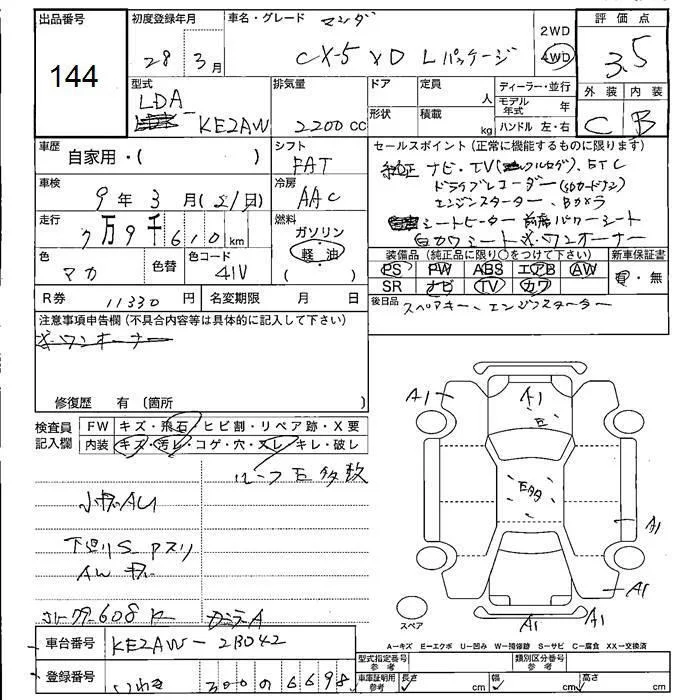 出品番号
144
初度登録年月
28年3月
車名・グレード マツダ
CX-5 XD Lパッケージ
2WD
4WD
評価点
3.5
外装 内装
C B
型式
LDA
KE2AW
排気量
2200cc
ドア
定員
人
形状
積載
kg
ディーラー・並行
モデル年式 年
ハンドル 左・右
車歴
自家用・( )
シフト
FAT
車検
9年3月(21日)
冷房
AAC
走行
7万9千610km
燃料
ガソリン
軽油
( )
色
マカ
色替
色コード
41V
R券 11330円
名変期限 月 日
セールスポイント(正常に機能するものに限ります)
純正ナビ・TV(フルセグ)、ETC
ドライブレコーダー(SDカードナシ)
エンジンスターター、Bカメラ
シートヒーター 前席パワーシート
白カワシート ワンオーナー
装備品(純正品に限り○をつけて下さい)
PS PW ABS エアB AW
SR ナビ TV カワ
新車保証書
有・無
後日品 スペアキー、エンジンスターター
注意事項申告欄(不具合内容等は具体的に記入して下さい)
ワンオーナー
修復歴 有(箇所 )
検査員記入欄
FW キズ・飛石・ヒビ割・リペア跡・X要
内装 キズ・汚レ・コゲ・穴・スレ・キレ・破レ
ルーフE多数
小キズAU
下廻りS アスリ
AWキズ
A1
A1
E
E多
A1
A1
A1
A1
スペア
A-キズ E-エクボ U-凹み W-補修跡 S-サビ C-腐食 XX-交換済
車台番号
KE2AW-213042
登録番号
いわき 300 の 6698
型式指定番号 参考
類別区分番号 参考
車庫証明用 参考
長さ cm
幅 cm
高さ cm